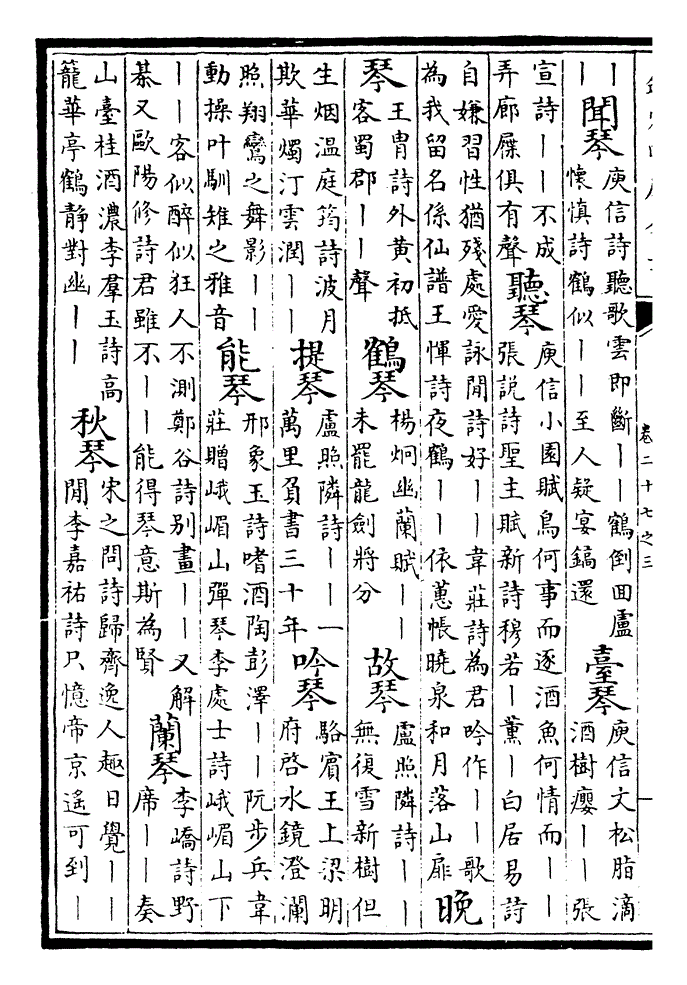 ｜
｜
聞琴
庾信詩聽歌雲即斷｜｜鶴倒回盧
懷慎詩鶴似｜｜至人疑宴鎬還
臺琴
庾信文松脂滴
酒樹癭｜｜張
宣詩｜｜不成
弄廊屧俱有聲
聽琴
庾信小園賦鳥何事而逐酒魚何情而｜｜
張說詩聖主賦新詩穆若｜薰｜白居易詩
自嫌習性猶殘處愛詠閒詩好｜｜韋莊詩為君吟作｜｜歌
為我留名係仙譜王惲詩夜鶴｜｜依蕙帳曉泉和月落山扉
晚
琴
王胄詩外黃初抵
客蜀郡｜｜聲
鶴琴
楊炯幽蘭賦｜｜
未罷龍劍將分
故琴
盧照隣詩｜｜
無復雪新樹但｜
生烟温庭筠詩波月
欺華燭汀雲潤｜｜
提琴
盧照隣詩｜｜一
萬里負書三十年
吟琴
駱賓王上梁明
府啓水鏡澄瀾
照翔鸞之舞影｜｜
動操叶馴雉之雅音
能琴
邢象玉詩嗜酒陶彭澤｜｜阮步兵韋
莊贈峨嵋山彈琴李處士詩峨嵋山下
｜｜客似醉似狂人不測鄭谷詩别畫｜｜又解
棊又歐陽修詩君雖不｜｜能得琴意斯為賢
蘭琴
李嶠詩野
席｜｜奏
山臺桂酒濃李羣玉詩高
籠華亭鶴静對幽｜｜
秋琴
宋之問詩歸齊逸人趣日覺｜｜
閒李嘉祐詩只憶帝京遥可到｜
卷二十七之三